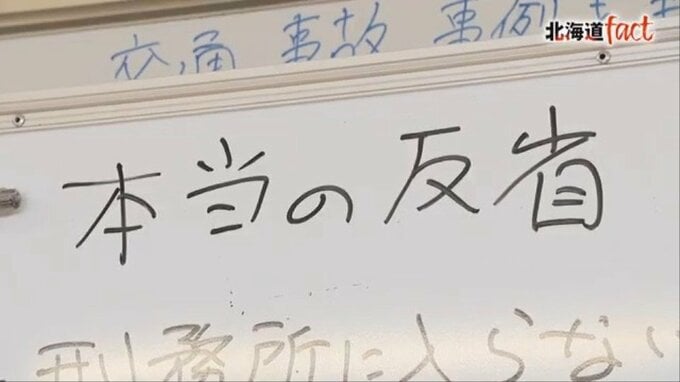 北海道fact
交通事故事例
本当の反省
刑務所に入らない